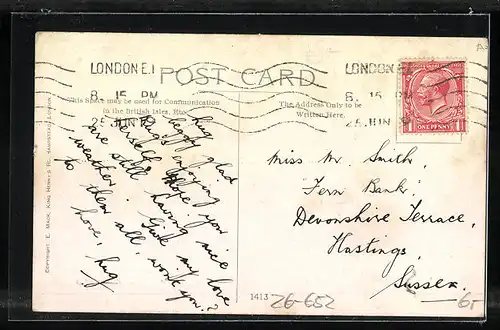 LONDON E.1
8. 15 PM
25
POST CARD
LONDON E.1
8. 15 PM
25 JUN
ONE PENNY
This Space may be used for Communication
in the British Isles, Etc.
The Address Only to be
Written Here.
Hug
happy & glad
Hugs enjoying
herself. Hope you
are still having nice
weather. Give my love
to them all, won't you?
Love, Hug
Miss M. Smith,
"Fern Bank,"
Devonshire Terrace,
Hastings,
Sussex.
COPYRIGHT E. MACK, KING HENRY'S RD., HAMPSTEAD, LONDON
1413
26-652